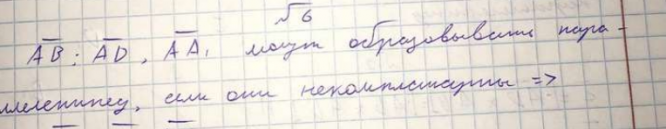 √6
AB; AD, AA₁ могут образовывать пара-
ллелепипед, если они некомпланарны =>